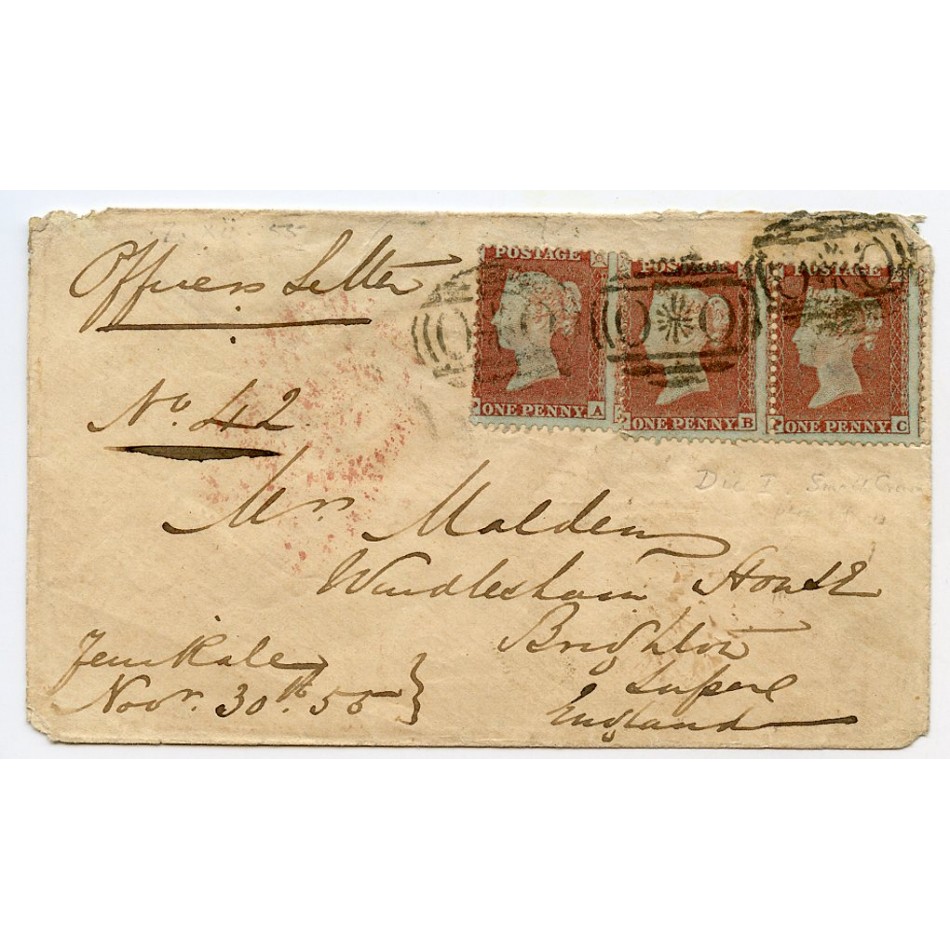 Officers Letter
No. 42
POSTAGE POSTAGE POSTAGE
O*O O*O O*O
ONE PENNY A
ONE PENNY B
ONE PENNY C
Die I Small Crown
Mrs Malden
Windlesham House
Brighton
Sussex
England
Jenikale
Novr. 30th. 55